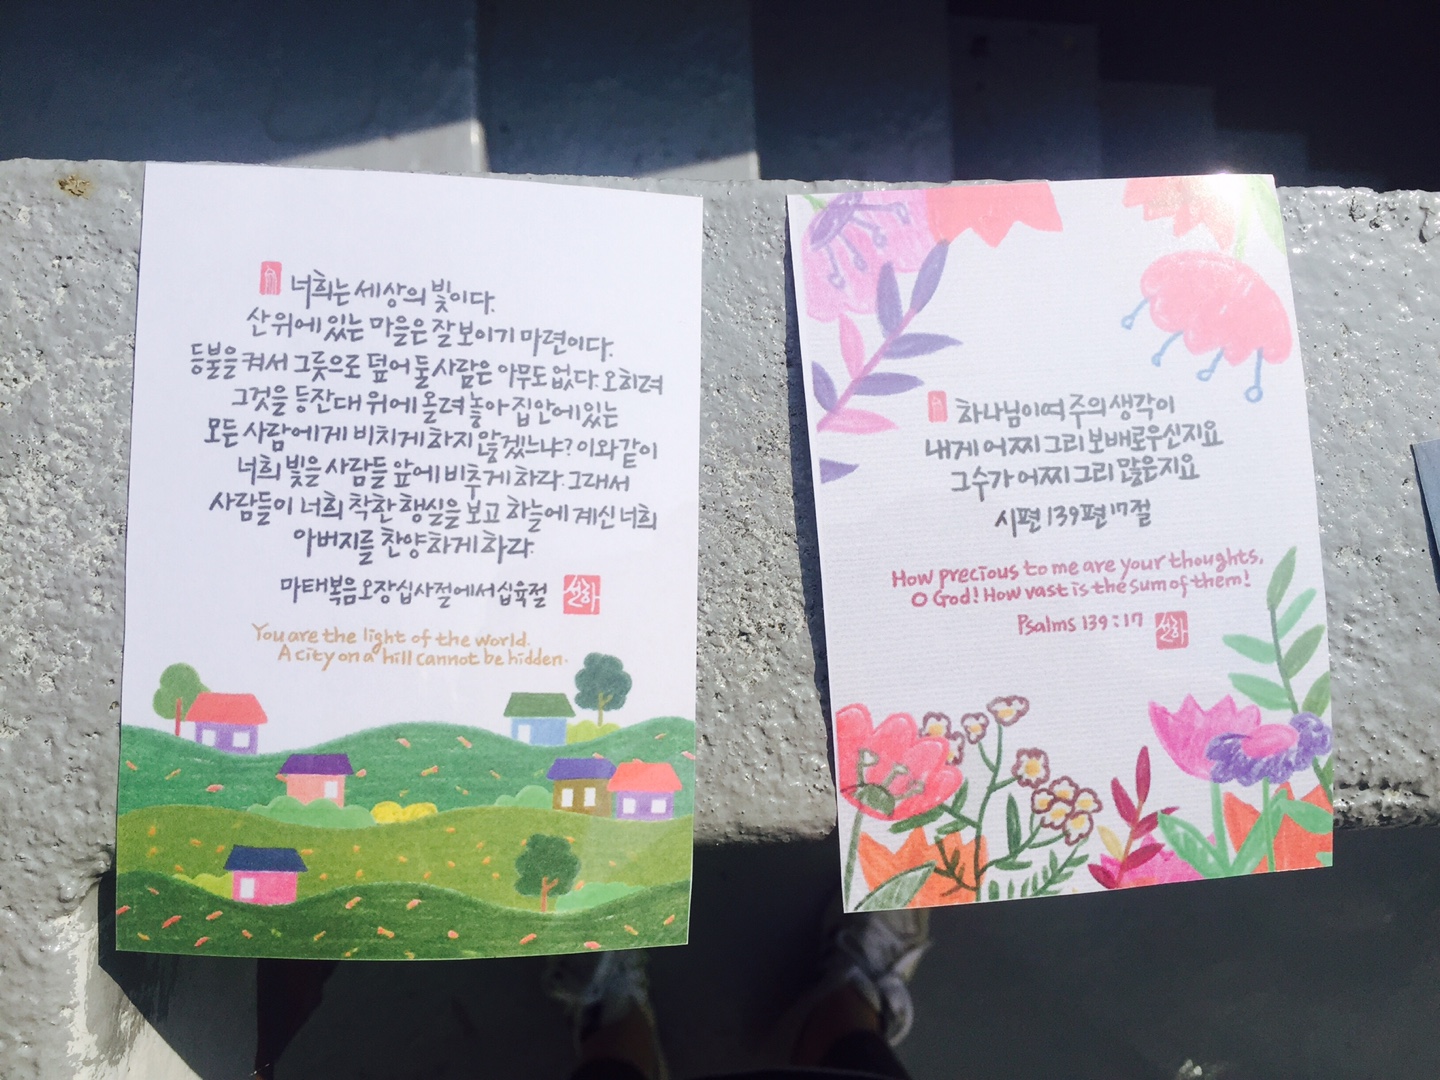 너희는 세상의 빛이다.
산 위에 있는 마을은 잘 보이기 마련이다.
등불을 켜서 그릇으로 덮어 둘 사람은 아무도 없다. 오히려
그것을 등잔대 위에 올려 놓아 집안에 있는
모든 사람에게 비치게 하지 않겠느냐? 이와 같이
너희 빛을 사람들 앞에 비추게 하라. 그래서
사람들이 너희 착한 행실을 보고 하늘에 계신 너희
아버지를 찬양하게 하라.
마태복음 오장 십사절에서 십육절
설하
You are the light of the world.
A city on a hill cannot be hidden.
하나님이여 주의 생각이
내게 어찌 그리 보배로우신지요
그 수가 어찌 그리 많은지요
시편 139편 17절
How precious to me are your thoughts,
O God! How vast is the sum of them!
Psalms 139:17
설하